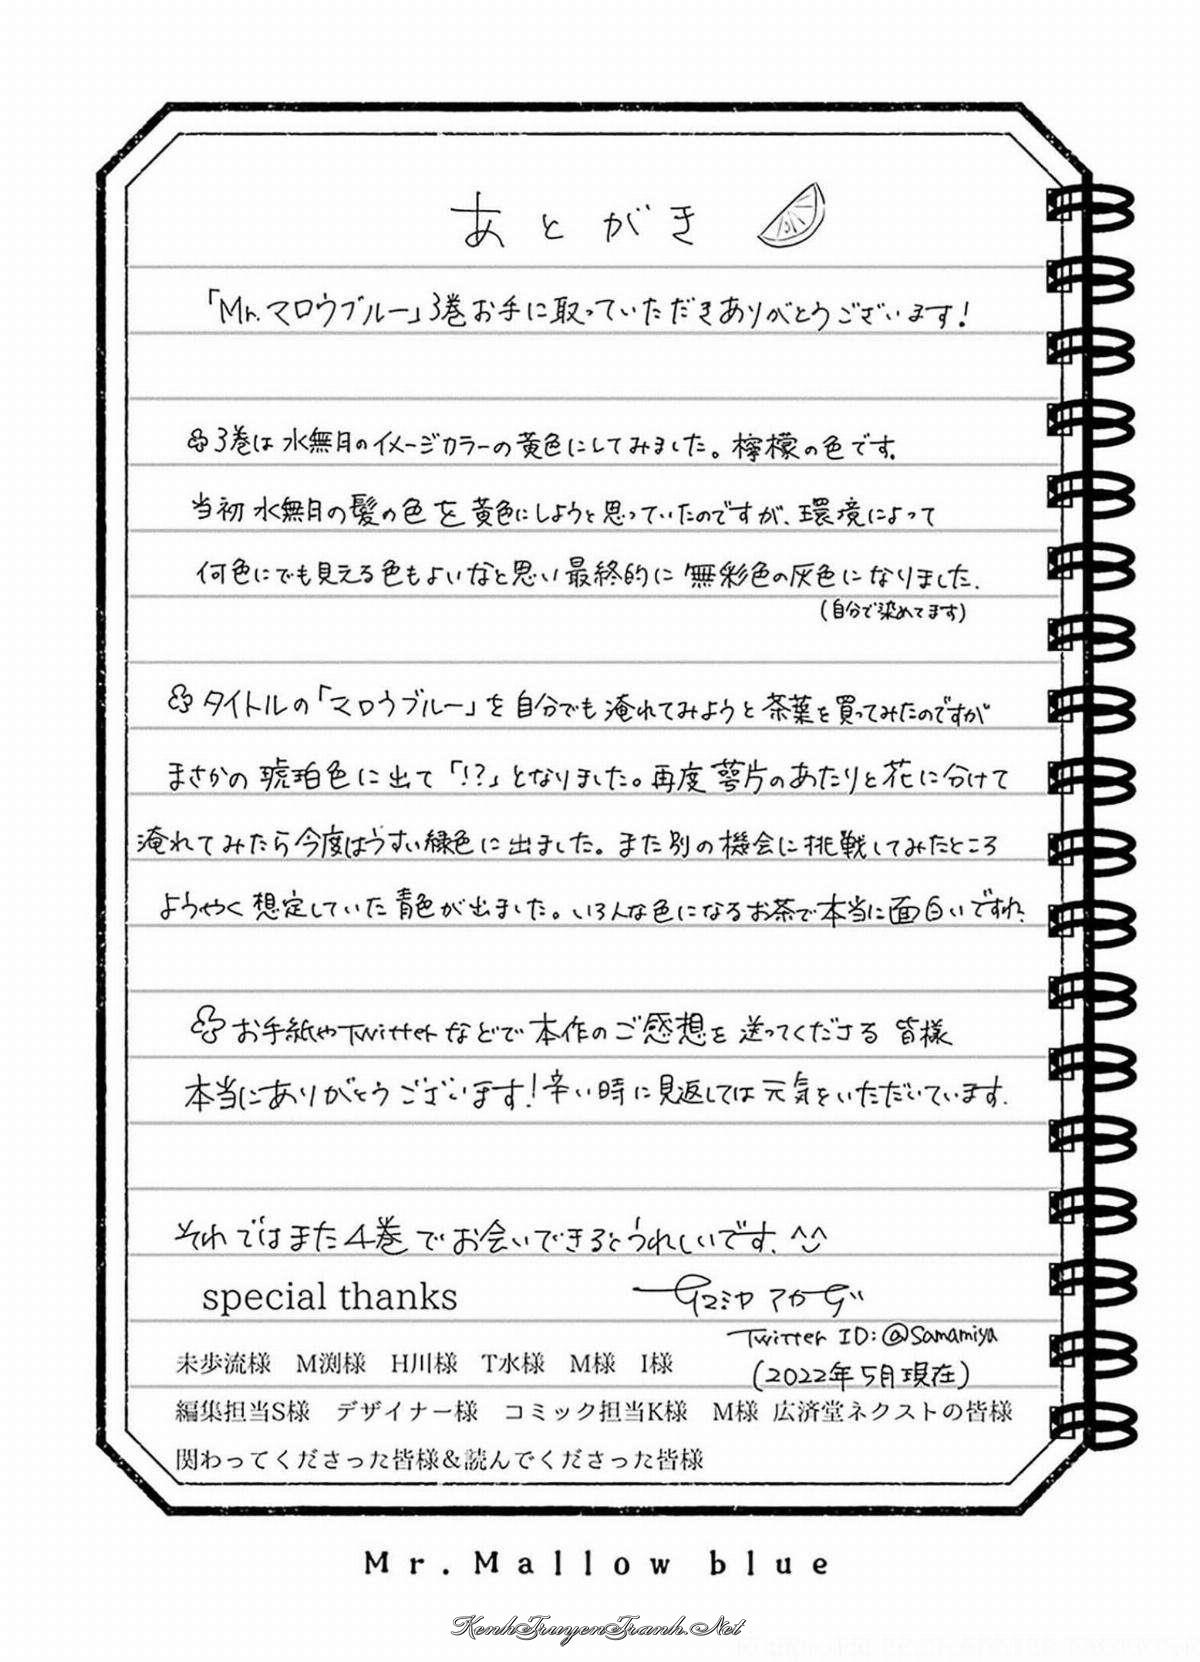 あとがき
「Mr.マロウブルー」3巻お手に取っていただきありがとうございます!
3巻は水無月のイメージカラーの黄色にしてみました。檸檬の色です。
当初水無月の髪の色を黄色にしようと思っていたのですが、環境によって
何色にでも見える色もよいなと思い最終的に無彩色の灰色になりました。
(自分で染めてます)
タイトルの「マロウブルー」を自分でも淹れてみようと茶葉を買ってみたのですが
まさかの琥珀色に出て「!?」となりました。再度萼片のあたりと花に分けて
淹れてみたら今度はうすい緑色に出ました。また別の機会に挑戦してみたところ
ようやく想定していた青色が出ました。いろんな色になるお茶で本当に面白いですね。
お手紙やTwitterなどで本作のご感想を送ってくださる皆様
本当にありがとうございます!辛い時に見返しては元気をいただいています。
それではまた4巻でお会いできるとうれしいです。^^
special thanks
アカデ
Twitter ID:@Samamiya
未歩流様 M渕様 H川様 T水様 M様 I様
(2022年5月現在)
編集担当S様 デザイナー様 コミック担当K様 M様 広済堂ネクストの皆様
関わってくださった皆様&読んでくださった皆様
Mr. Mallow blue
KenhTruyenTranh.Net